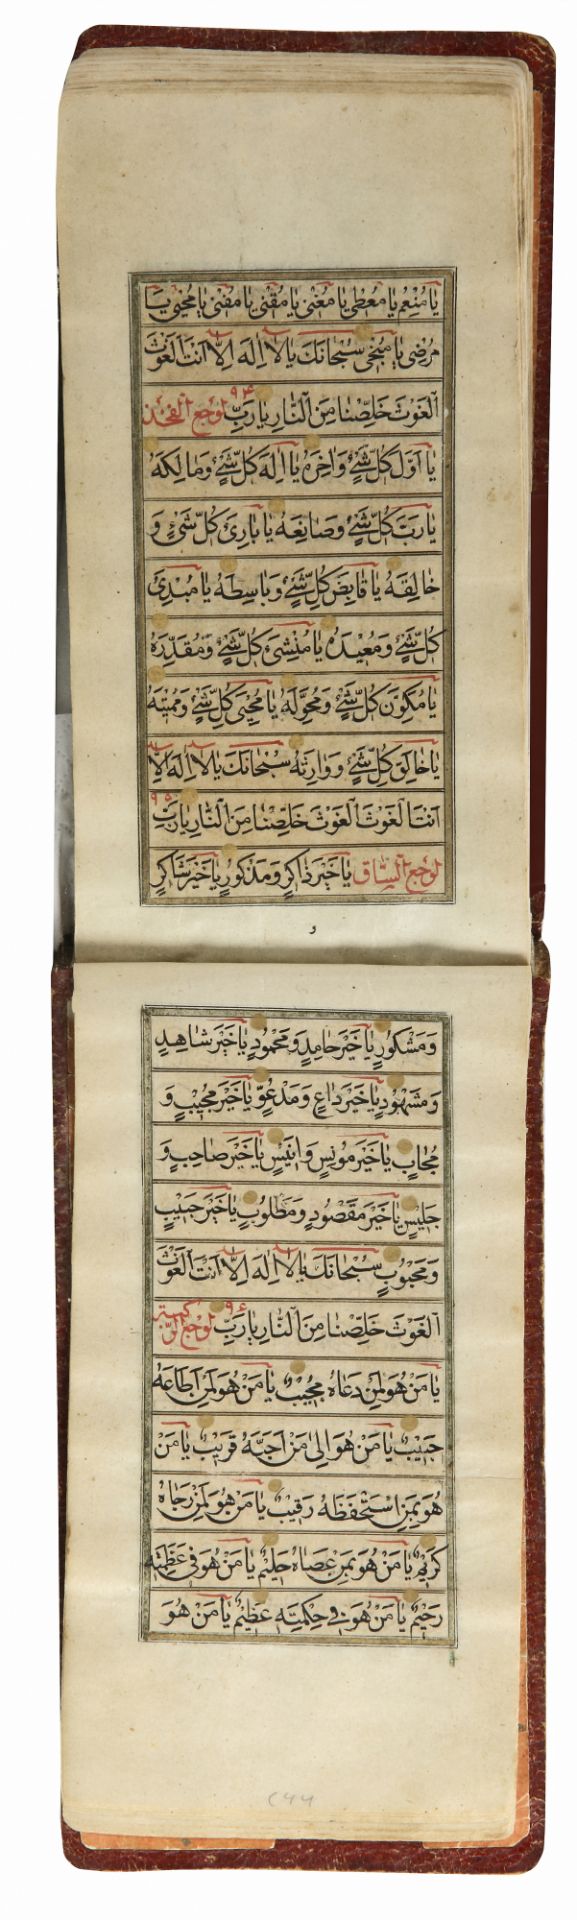 يَا مُنْعِمُ يَا مُعْطِي يَا مُغْنِي يَا مُقْنِي يَا مُفْنِي يَا مُحْيِي يَا
مُرْضِي يَا مُنْجِي سُبْحَانَكَ يَا لَا اِلٰهَ اِلَّا اَنْتَ اَلْغَوْثَ
اَلْغَوْثَ خَلِّصْنَا مِنَ النَّارِ يَا رَبِّ ۹۴ لوجع الفخذ
يَا اَوَّلَ كُلِّ شَيْءٍ وَاٰخِرَهُ يَا اِلٰهَ كُلِّ شَيْءٍ وَمَالِكَهُ
يَا رَبَّ كُلِّ شَيْءٍ وَصَانِعَهُ يَا بَارِئَ كُلِّ شَيْءٍ وَ
خَالِقَهُ يَا قَابِضَ كُلِّ شَيْءٍ وَبَاسِطَهُ يَا مُبْدِئَ
كُلِّ شَيْءٍ وَمُعِيدَهُ يَا مُنْشِئَ كُلِّ شَيْءٍ وَمُقَدِّرَهُ
يَا مُكَوِّنَ كُلِّ شَيْءٍ وَمُحَوِّلَهُ يَا مُحْيِيَ كُلِّ شَيْءٍ وَمُمِيتَهُ
يَا خَالِقَ كُلِّ شَيْءٍ وَوَارِثَهُ سُبْحَانَكَ يَا لَا اِلٰهَ اِلَّا
اَنْتَ اَلْغَوْثَ اَلْغَوْثَ خَلِّصْنَا مِنَ النَّارِ يَا رَبِّ ۹۵
لوجع الساق يَا خَيْرَ ذَاكِرٍ وَمَذْكُورٍ يَا خَيْرَ شَاكِرٍ
و
وَمَشْكُورٍ يَا خَيْرَ حَامِدٍ وَمَحْمُودٍ يَا خَيْرَ شَاهِدٍ
وَمَشْهُودٍ يَا خَيْرَ دَاعٍ وَمَدْعُوٍّ يَا خَيْرَ مُجِيبٍ وَ
مُجَابٍ يَا خَيْرَ مُونِسٍ وَاَنِيسٍ يَا خَيْرَ صَاحِبٍ وَ
جَلِيسٍ يَا خَيْرَ مَقْصُودٍ وَمَطْلُوبٍ يَا خَيْرَ حَبِيبٍ
وَمَحْبُوبٍ سُبْحَانَكَ يَا لَا اِلٰهَ اِلَّا اَنْتَ اَلْغَوْثَ
اَلْغَوْثَ خَلِّصْنَا مِنَ النَّارِ يَا رَبِّ ۹۶ لوجع الركبة
يَا مَنْ هُوَ لِمَنْ دَعَاهُ مُجِيبٌ يَا مَنْ هُوَ لِمَنْ اَطَاعَهُ
حَبِيبٌ يَا مَنْ هُوَ اِلٰى مَنْ اَحَبَّهُ قَرِيبٌ يَا مَنْ
هُوَ بِمَنِ اسْتَحْفَظَهُ رَقِيبٌ يَا مَنْ هُوَ لِمَنْ رَجَاهُ
كَرِيمٌ يَا مَنْ هُوَ بِمَنْ عَصَاهُ حَلِيمٌ يَا مَنْ هُوَ فِي عَظَمَتِهِ
رَحِيمٌ يَا مَنْ هُوَ فِي حِكْمَتِهِ عَظِيمٌ يَا مَنْ هُوَ